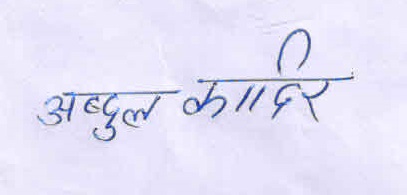 अब्दुल कादिर